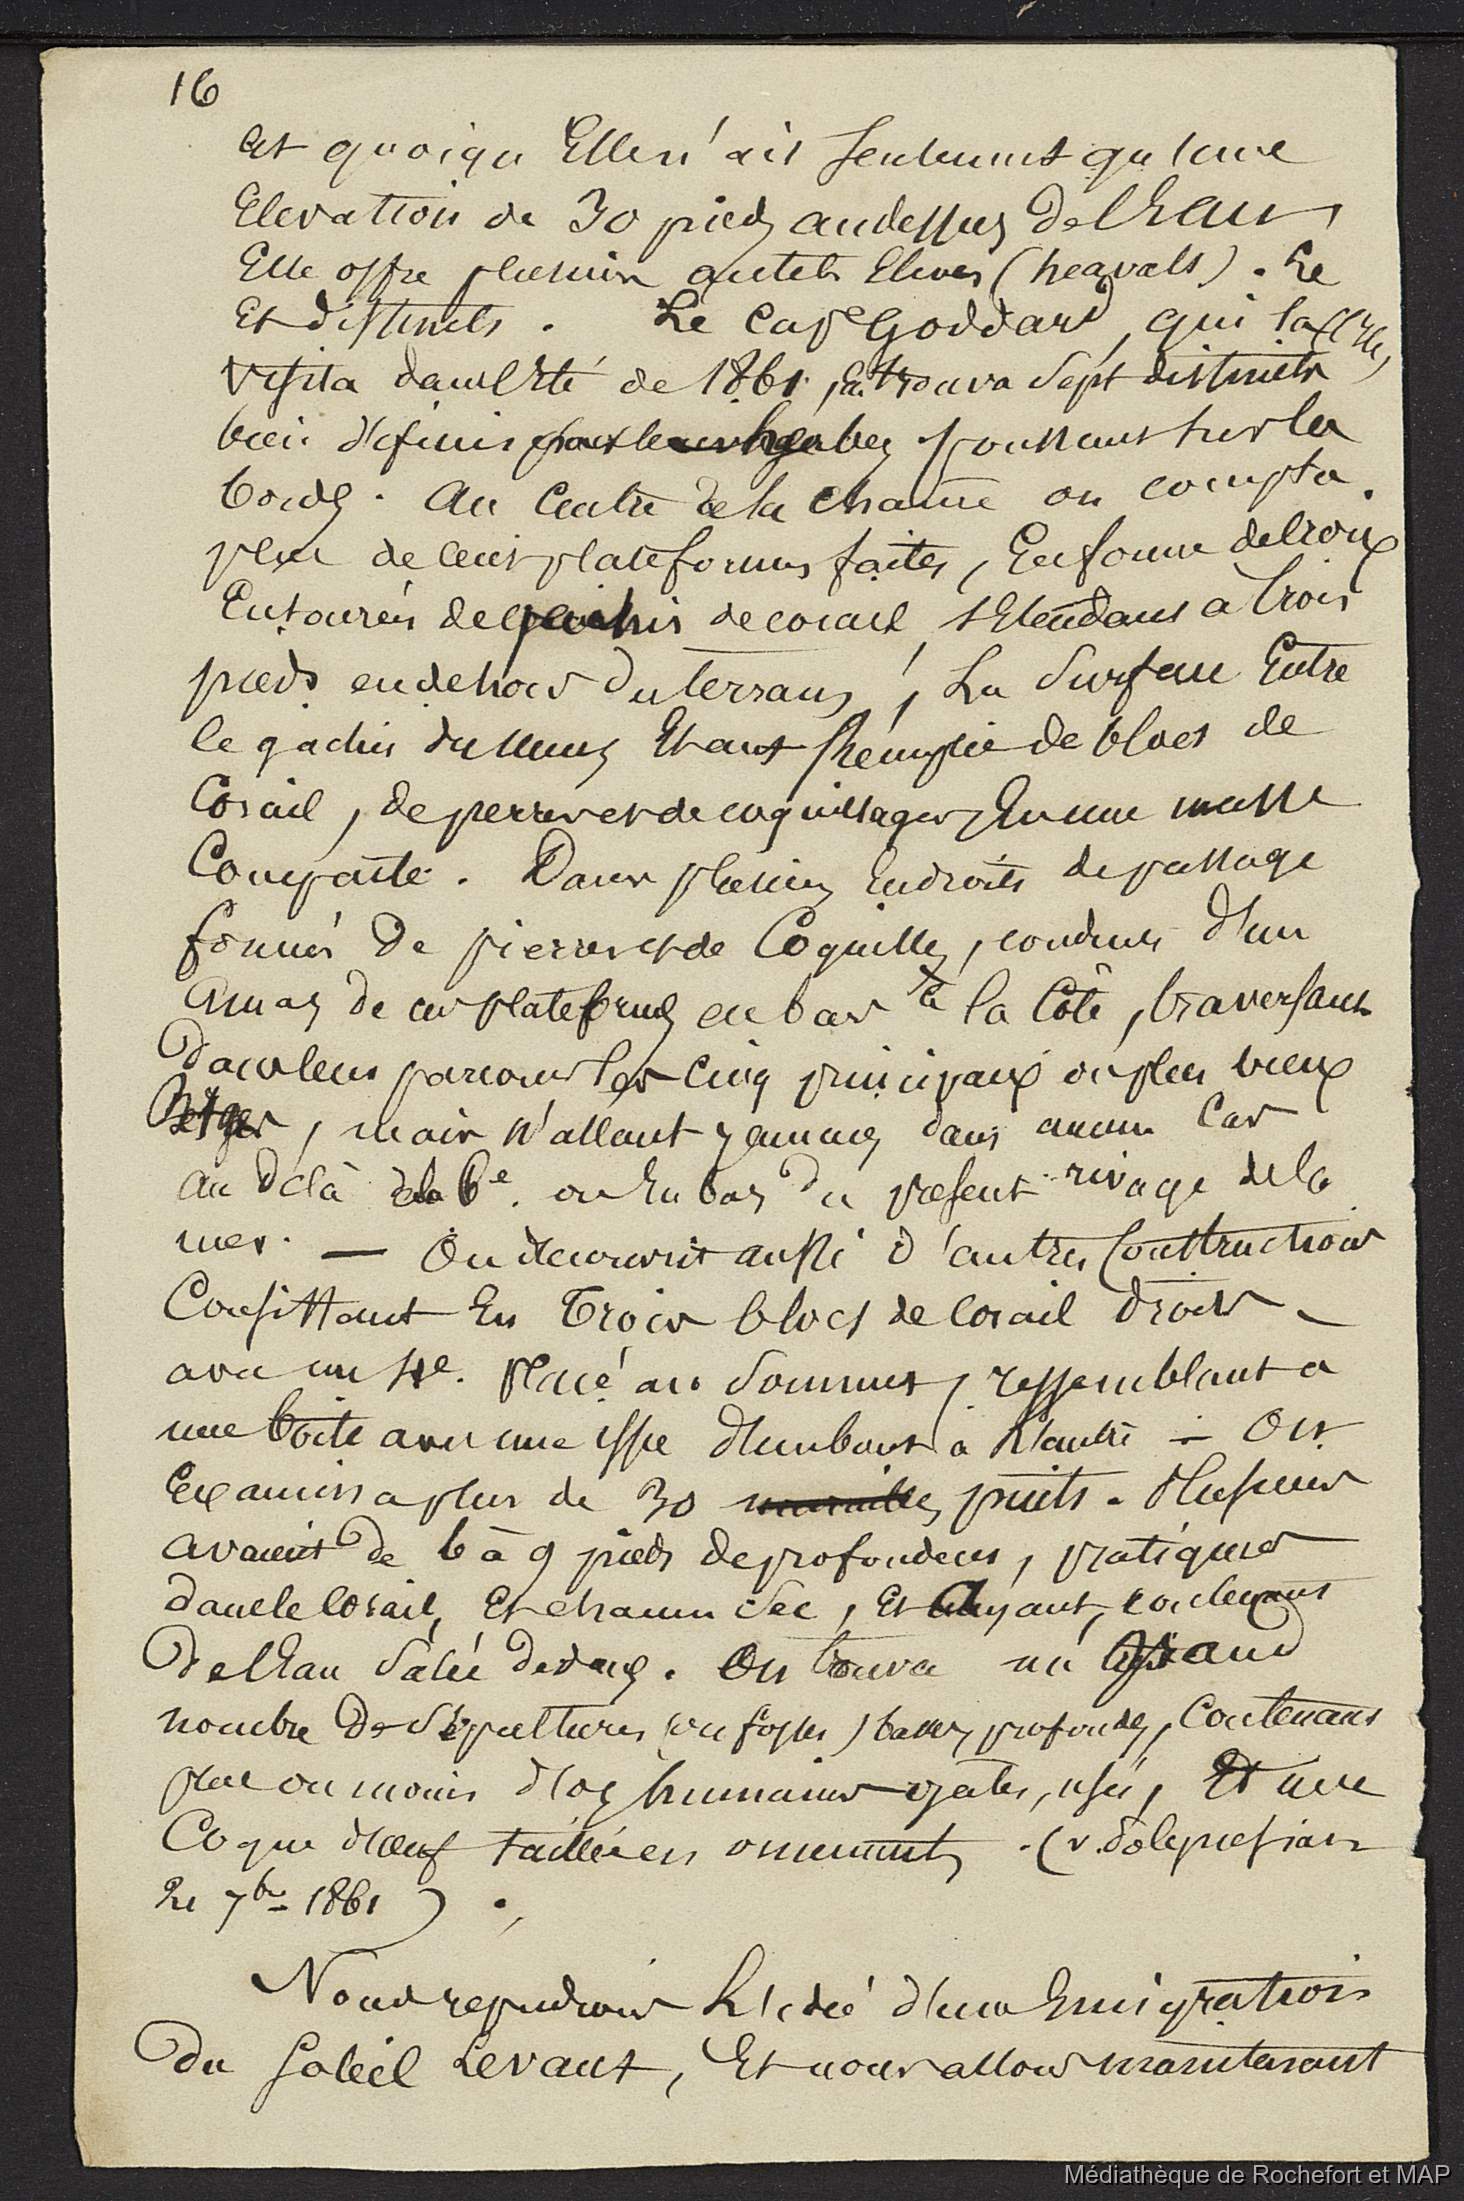 16
et quoiqu'Elle n'ait seulement qu'une
Elevation de 30 pieds audessus de l'Eau,
Elle offre plusieurs autels Elevés (heavals). Le
Et distincts. Le Cape Goddard, qui la
visita dans l'Eté de 1861, en trouva sept distincts
bien définis poussant sur les
bords. Au Centre de la chaine on compta
plus de cent plateformes faites, En forme de croix
Entourés de gachis de corail, s'Etendans a trois
pieds en dehors du terrain, La Surface Entre
le gachis du murs Etant Remplie de blocs de
Corail, de pierres et de coquillages, En une masse
Compacte. Dans plusieurs Endroits de passage
formés de pierres et de Coquilles, conduits d'un
amas de ces plateformes en bas à la Côte, traversant
dans leur parcours les cinq principaux ou plus vieux
, mais n'allant jamais dans aucun Cas
au delà de la 6e. ou En bas du présent rivage de la
mer. — On decouvrit aussi d'autres Constructions
Consistant En trois blocs de Corail droits
avec un 4e. placé au sommet, ressemblant a
une boite avec une issue d'un bout à l'autre — On
Examina plus de 30 murailles puits. Plusieurs
avaient de 6 à 9 pieds de profondeur, pratiqués
dans le Corail, Et chacun sec, Et ayant, contenant
de l'Eau salée dedans. On trouva un Grand
nombre de Sépultures (ou fosses) basses, profondes, Contenans
plus ou moins d'os humains gatés, usés, Et une
Coque d'œuf taillée en ornements. (v. Polynesian
21 7bre 1861).
Nous reprendrons L'idée d'une Emigration
du Soleil Levant, Et nous allons maintenant
Médiathèque de Rochefort et MAP